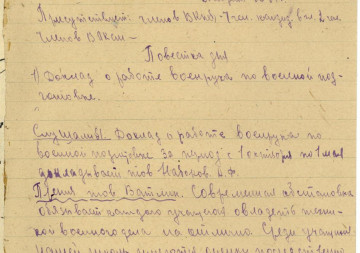 Присутствуют: членов ВКП(б) - 7 чел. кандид. в чл. 2 чел.
Членов ВЛКСМ -
Повестка дня
1) Доклад о работе военрука по военной под-
готовке.
Слушали: Доклад о работе военрука по
военной подготовке за период с 1 октября по 1 мая
докладывает тов
Прения тов Ватлин. Современная обстановка
обязывает каждого учащегося овладеть техни-
кой военного дела на отлично. Среди учащихся
нашей школы имеются